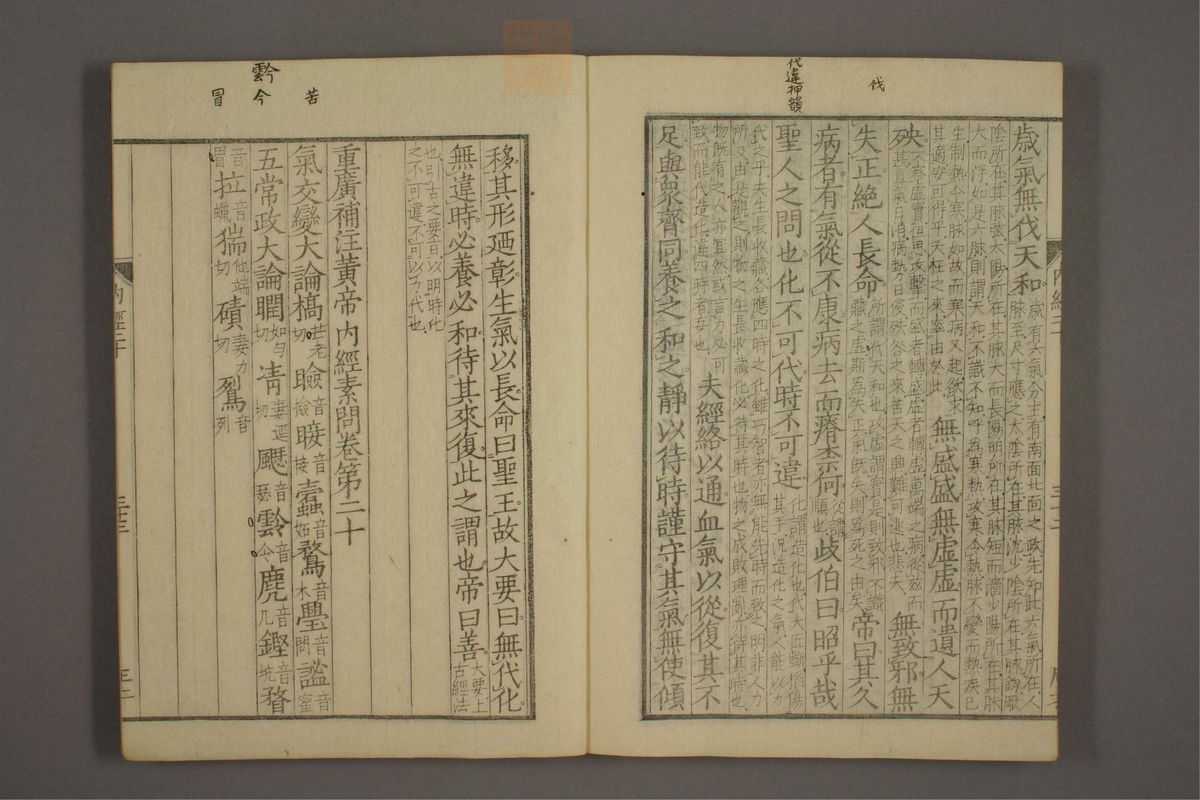 伐
代違押韻
歲氣無伐天和歲有六氣分主有南面北面之政先知此六氣所在人
脉至尺寸應之太陰所在其脉沉少陰所在其脉鈎厥
陰所在其脉弦太陽所在其脉大而長陽明所在其脉短而濇少陽所在其脉
大而浮如是六脉則謂天和不識不知呼為寒熱攻寒令熱脉不變而熱疾已
生制熱令寒脉如故而寒病又起欲求
其適安可得乎夭枉之來率由於此無盛盛無虛虛而遺人天
殃不察虛實但思攻擊而盛者轉盛虛者轉虛萬端之病從茲而
甚真氣日消病勢日侵殃咎之來苦夭之興難可逃也悲夫無致邪無
失正絕人長命所謂代天和也攻虛謂實是則致邪不識
藏之虛斯為失正正氣既失則為死之由矣帝曰其久
病者有氣從不康病去而瘠柰何從謂
順也歧伯曰昭乎哉
聖人之問也化不可代時不可違化謂造化也代大匠斲猶傷
其手況造化之氣人能以力
代之乎夫生長收藏各應四時之化雖巧智者亦無能先時而致之明非人力
所及由是觀之則物之生長收藏化必待其時也物之成敗理亂亦待其時也
物既有之人亦宜然或言力必可
致而能代造化違四時者妄也夫經絡以通血氣以從復其不
足與眾齊同養之和之靜以待時謹守其氣無使傾
內經二十
三十二
苦
黔今
冒
移其形廼彰生氣以長命曰聖王故大要曰無代化
無違時必養必和待其來復此之謂也帝曰善大要上
古經法
也引古之要旨以明時化
之不可違不可以力代也
重廣補注黃帝內經素問卷第二十
氣交變大論槁苦老
切瞼音
撿䀹音
接蠧音
妬鶩音
木璺音
問謐音
蜜
五常政大論瞤如勻
切凊妻逕
切飋音
瑟黔音
今麂音
几鏗音
坑瞀
音
冐拉音
蠟猯他端
切磧妻力
切鴷音
列
內經二十
三十三